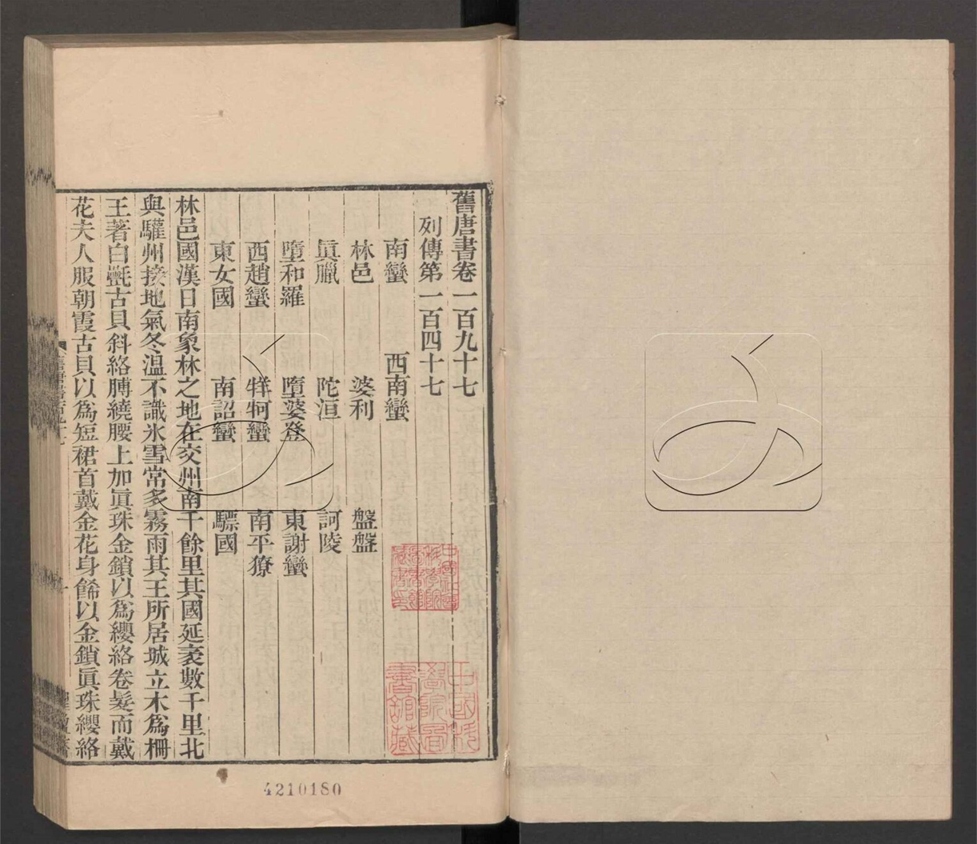 舊唐書卷一百九十七
列傳第一百四十七
南蠻 西南蠻
林邑 婆利 盤盤
眞臘 陀洹 訶陵
墮和羅 墮婆登 東謝蠻
西趙蠻 牂牁蠻 南平獠
東女國 南詔蠻 驃國
林邑國漢日南象林之地在交州南千餘里其國延袤數千里北
與驩州接地氣冬溫不識氷雪常多霧雨其王所居城立木爲柵
王著白㲲古貝斜絡膊繞腰上加眞珠金鎖以爲纓絡卷髮而戴
花夫人服朝霞古貝以爲短裙首戴金花身餙以金鎖眞珠纓絡
4210180